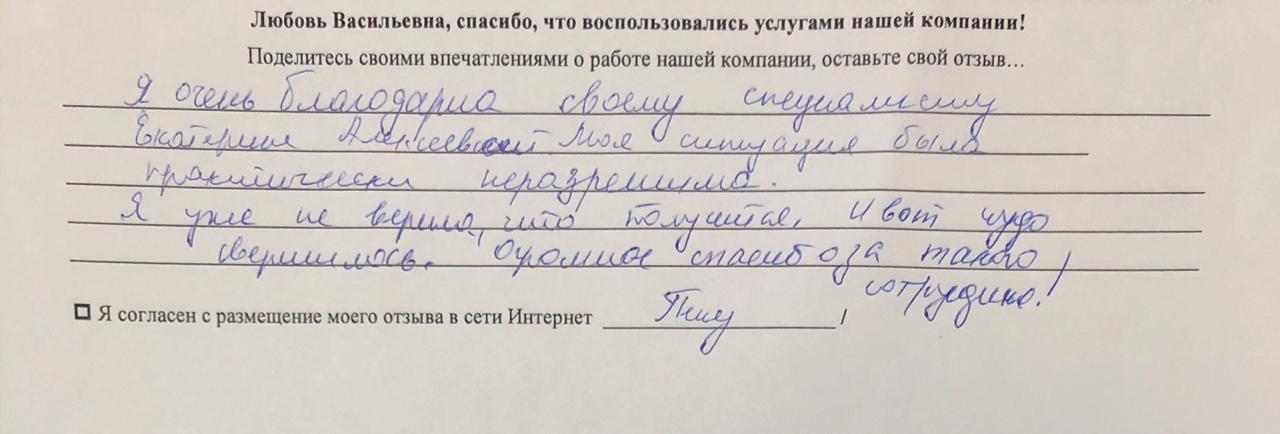 Любовь Васильевна, спасибо, что воспользовались услугами нашей компании!
Поделитесь своими впечатлениями о работе нашей компании, оставьте свой отзыв…
Я очень благодарна своему специалисту
Екатерине Алексеевной Моя ситуация была
практически неразрешима.
Я уже не верила, что получится, И вот чудо
свершилось. Огромное спасибо за такого
сотрудника!
Я согласен с размещение моего отзыва в сети Интернет